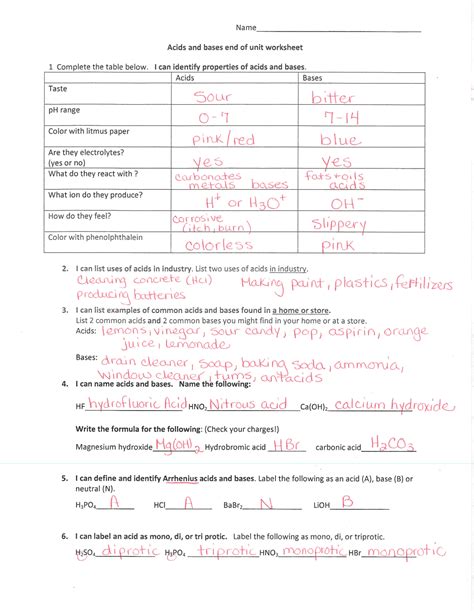 Name
Acids and bases end of unit worksheet
1 Complete the table below. I can identify properties of acids and bases.
Acids Bases
Taste Sour bitter
pH range 0-7 7-14
Color with litmus paper pink/red blue
Are they electrolytes? (yes or no) yes yes
What do they react with ? carbonates metals bases fats+oils acids
What ion do they produce? H⁺ or H₃O⁺ OH⁻
How do they feel? corrosive (itch, burn) Slippery
Color with phenolphthalein colorless pink
2. I can list uses of acids in industry. List two uses of acids in industry.
Cleaning concrete (HCl) Making paint, plastics, fertilizers
producing batteries
3. I can list examples of common acids and bases found in a home or store.
List 2 common acids and 2 common bases you might find in your home or at a store.
Acids: lemons, vinegar, sour candy, pop, aspirin, orange
juice, lemonade
Bases: drain cleaner, soap, baking soda, ammonia,
window cleaner, tums, antacids
4. I can name acids and bases. Name the following:
HF hydrofluoric Acid HNO₂ Nitrous acid Ca(OH)₂ calcium hydroxide
Write the formula for the following: (Check your charges!)
Magnesium hydroxide Mg(OH)₂ Hydrobromic acid HBr carbonic acid H₂CO₃
5. I can define and identify Arrhenius acids and bases. Label the following as an acid (A), base (B) or
neutral (N).
H₃PO₄ A HCl A BaBr₂ N LiOH B
6. I can label an acid as mono, di, or tri protic. Label the following as mono, di, or triprotic.
H₂SO₄ diprotic H₃PO₄ triprotic HNO₃ monoprotic HBr monoprotic